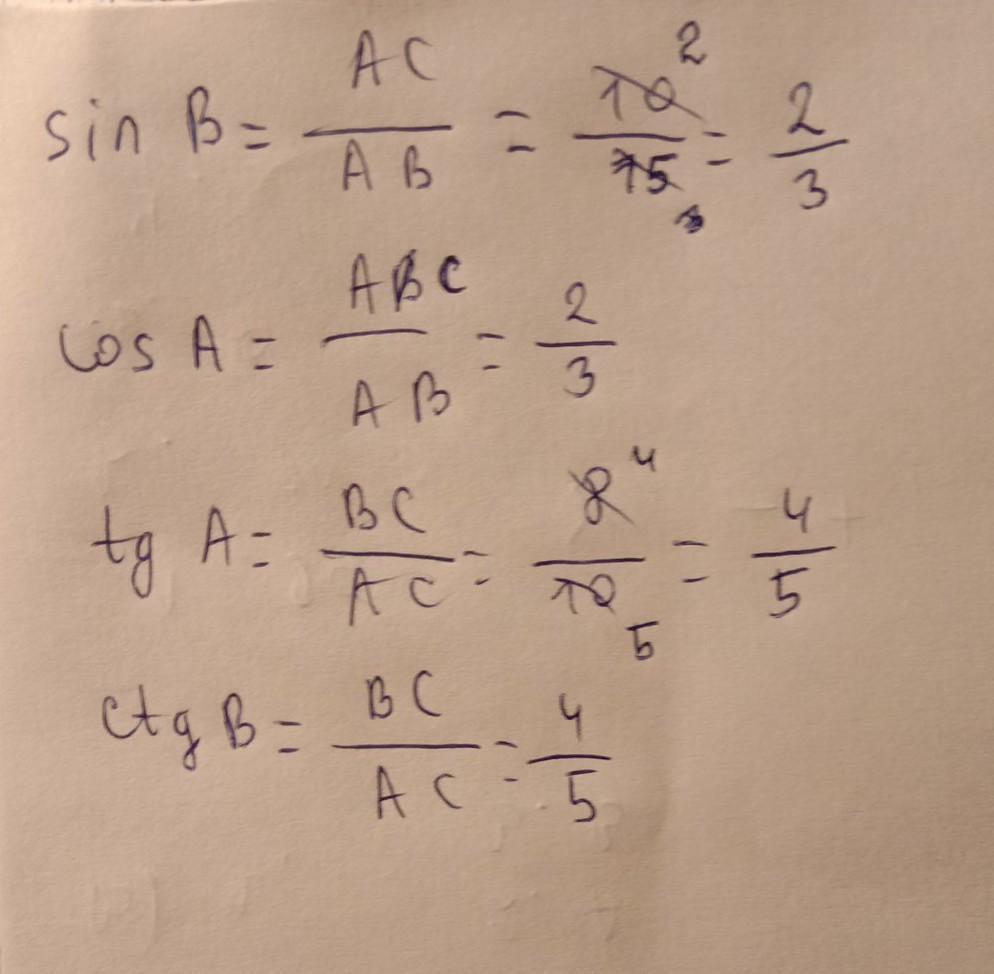 sin B = AC / AB = 10 2 / 15 3 = 2/3
cos A = ABC / AB = 2/3
tg A = BC / AC = 8 4 / 10 5 = 4/5
ctg B = BC / AC = 4/5